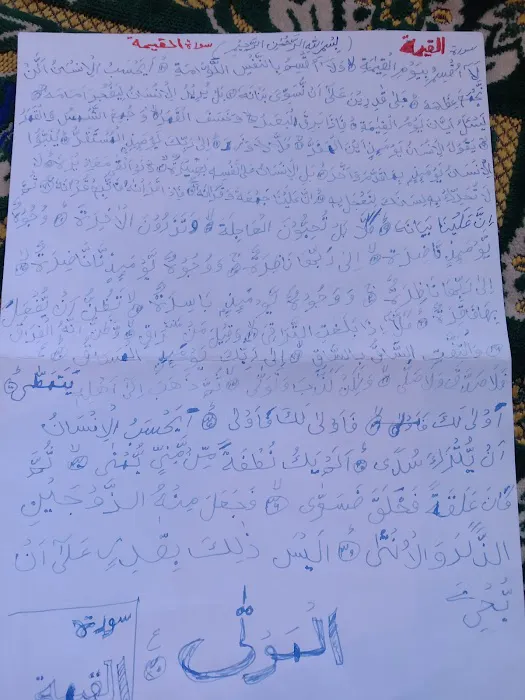 سورة القيمة بسم الله الرحمن الرحيم سورة القيمة
لا أقسم بيوم القيمة ولا أقسم بالنفس اللوامة أيحسب الإنسان ألن
نجمع عظامه بلى قدرين على أن نسوي بنانه بل يريد الإنسن ليفجر أمامه
يسئل أيان يوم القيمة فإذا برق البصر وخسف القمر وجمع الشمس والقمر
يقول الإنسن يومئذ أين المفر كلا لا وزر إلى ربك يومئذ المستقر ينبؤا
الإنسن يومئذ بما قدم وأخر بل الإنسن على نفسه بصيرة ولو ألقى معاذيره
لا تحرك به لسانك لتعجل به إن علينا جمعه وقرءانه فإذا قرأنه فاتبع قرءانه ثم
إن علينا بيانه كلا بل تحبون العاجلة وتذرون الآخرة وجوه
يومئذ ناضرة إلى ربها ناظرة ووجوه يومئذ ناضرة
إلى ربها ناظرة ووجوه يومئذ باسرة تظن أن يفعل
بها فاقرة كلا إذا بلغت التراقي وقيل من راق وظن أنه الفراق
والتفت الساق بالساق إلى ربك يومئذ المساق
فلا صدق ولا صلى ولكن كذب وتولى ثم ذهب إلى أهله يتمطى
أولى لك فأولى ثم أولى لك فأولى أيحسب الإنسان
أن يترك سدى ألم يك نطفة من مني يمنى ثم
كان علقة فخلق فسوى فجعل منه الزوجين
الذكر والأنثى أليس ذلك بقدر على أن
يحي
الموتى
سورة
القيمة